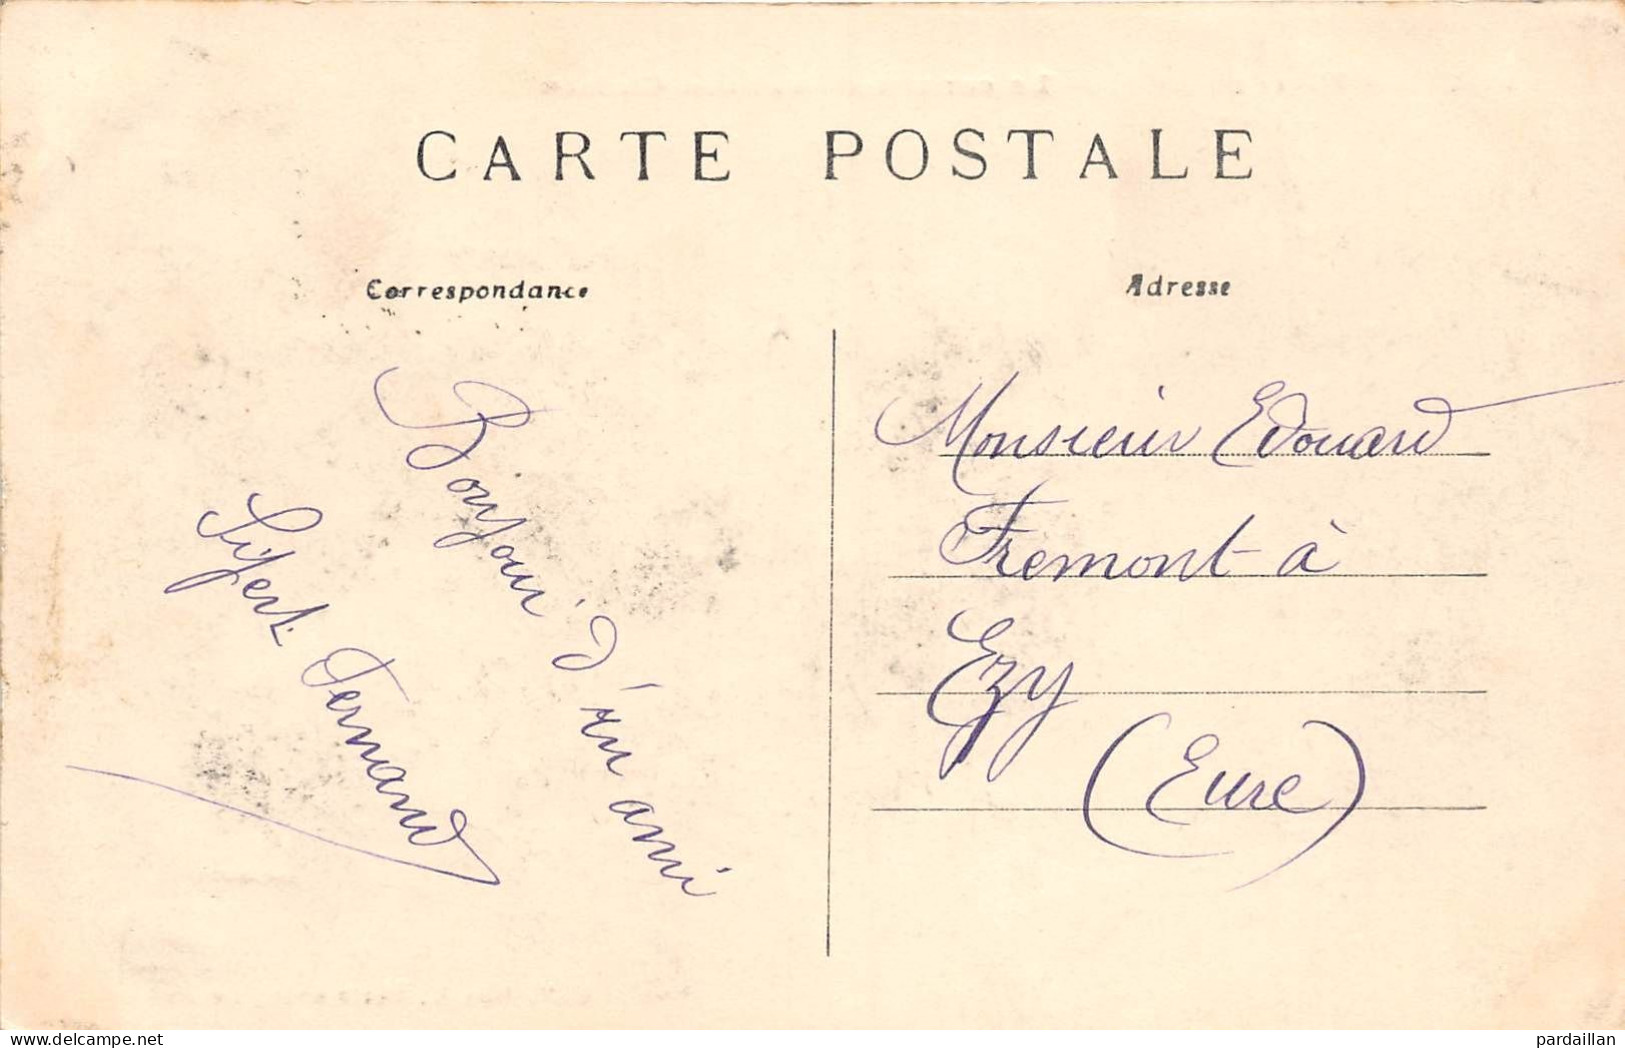 CARTE POSTALE
Correspondance
Bonjour d'un ami
Sifert Fernand
Adresse
Monsieur Edouard
Fremont à
Ezy
(Eure)
delcampe.net
pardaillan